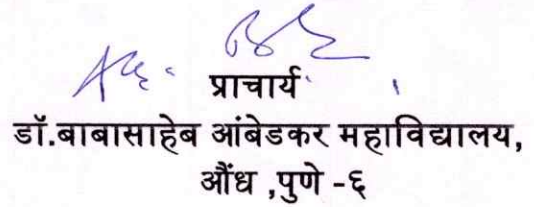 प्राचार्य
डॉ.बाबासाहेब आंबेडकर महाविद्यालय,
औंध ,पुणे -६